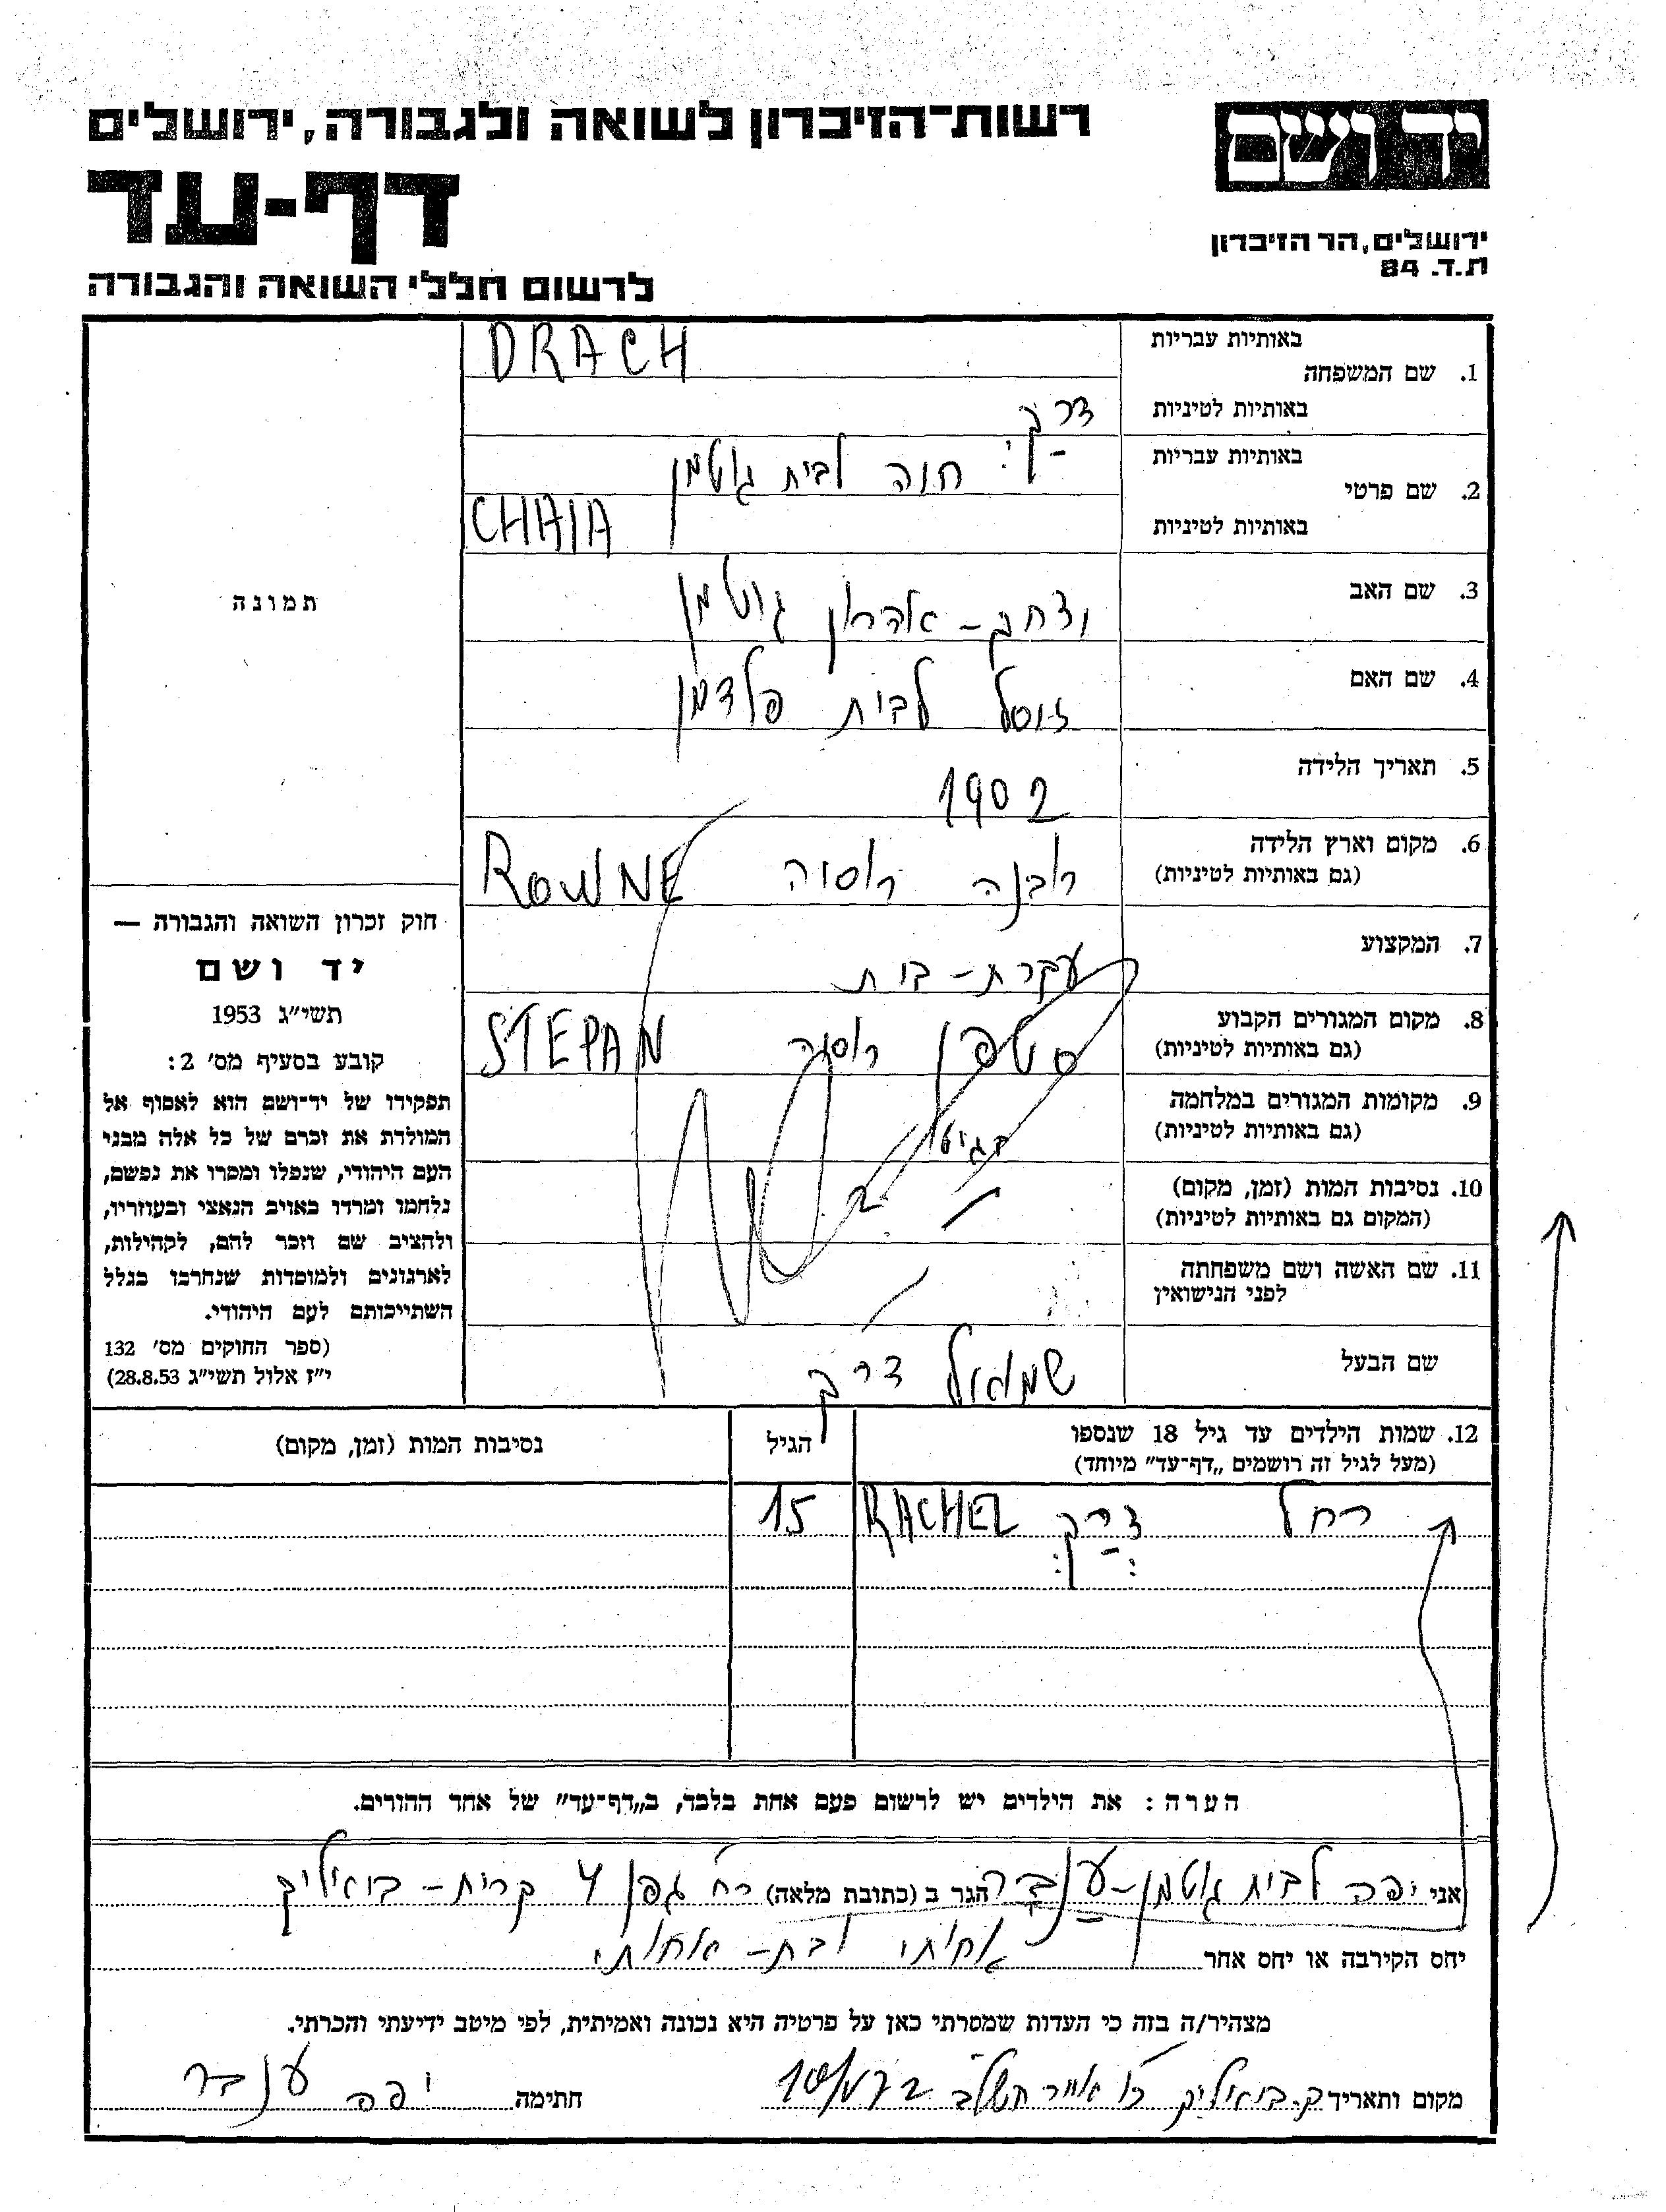 יד ושם
רשות-הזיכרון לשואה ולגבורה, ירושלים
דף-עד
ירושלים, הר הזיכרון
ת.ד. 84
לרשום חללי השואה והגבורה
באותיות עבריות
1. שם המשפחה
DRACH
באותיות לטיניות
דרך
באותיות עבריות
2. שם פרטי
חיה לבית גוטמן
באותיות לטיניות
CHAIA
3. שם האב
יצחק - אהרון גוטמן
4. שם האם
זיסל לבית פלדמן
5. תאריך הלידה
1902
6. מקום וארץ הלידה
(גם באותיות לטיניות)
רובנה רוסיה ROWNE
7. המקצוע
עקרת - בית
8. מקום המגורים הקבוע
(גם באותיות לטיניות)
סטפן רוסיה STEPAN
9. מקומות המגורים במלחמה
(גם באותיות לטיניות)
10. נסיבות המות (זמן, מקום)
(המקום גם באותיות לטיניות)
11. שם האשה ושם משפחתה
לפני הנישואין
שם הבעל
שמואל דרך
תמונה
חוק זכרון השואה והגבורה —
יד ושם
תשי״ג 1953
קובע בסעיף מס׳ 2:
תפקידו של יד־ושם הוא לאסוף אל
המולדת את זכרם של כל אלה מבני
העם היהודי, שנפלו ומסרו את נפשם,
נלחמו ומרדו באויב הנאצי ובעוזריו,
ולהציב שם וזכר להם, לקהילות,
לארגונים ולמוסדות שנחרבו בגלל
השתייכותם לעם היהודי.
(ספר החוקים מס׳ 132
י״ז אלול תשי״ג 28.8.53)
12. שמות הילדים עד גיל 18 שנספו הגיל נסיבות המות (זמן, מקום)
(מעל לגיל זה רושמים „דף־עד״ מיוחד)
רחל דרך RACHEL 15
הערה: את הילדים יש לרשום פעם אחת בלבד, ב„דף־עד״ של אחד ההורים.
אני יפה לבית גוטמן - ענבר הגר ב (כתובת מלאה) רח׳ גפן 4 קרית - ביאליק
יחס הקירבה או יחס אחר אחותי ובת - אחותי
מצהיר/ה בזה כי העדות שמסרתי כאן על פרטיה היא נכונה ואמיתית, לפי מיטב ידיעתי והכרתי.
מקום ותאריך ק. ביאליק אייר תשל״ב חתימה יפה ענבר